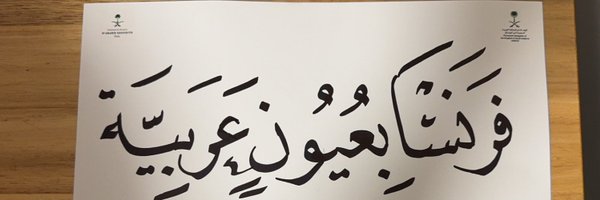 فَرَنْسَا بِعُيُونٍ عَرَبِيَّة